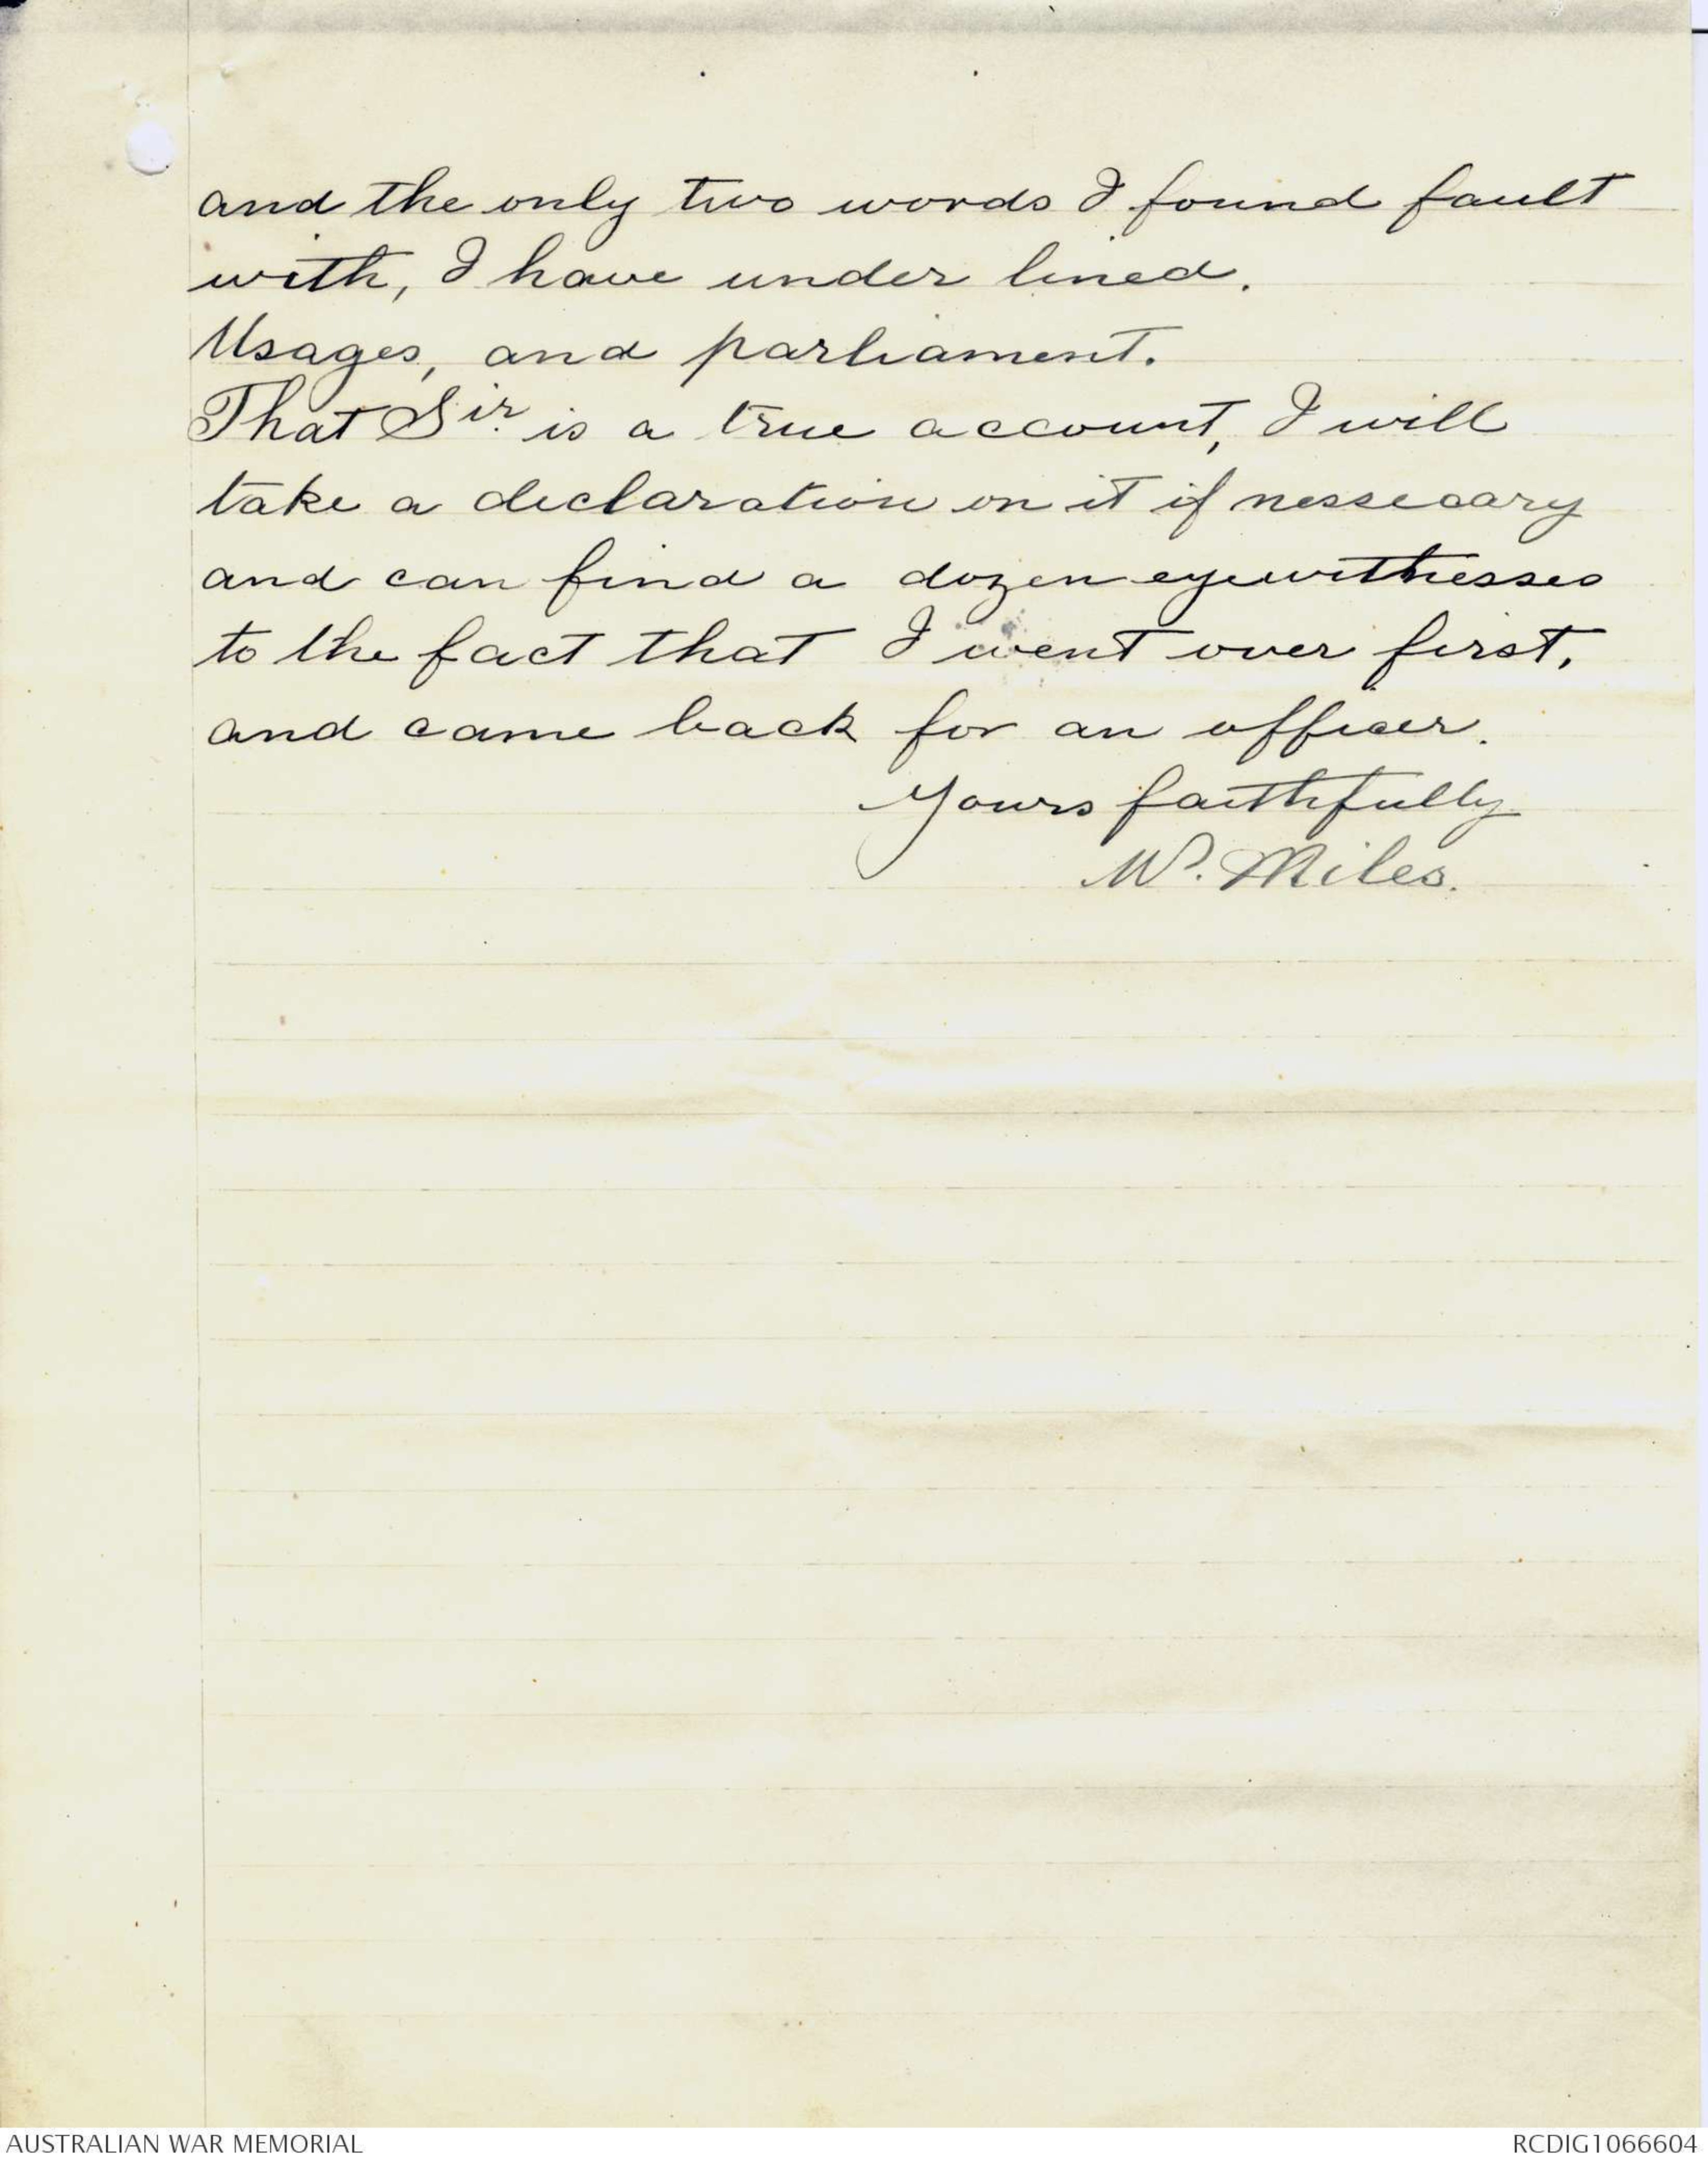 and the only two words I found fault
with, I have under lined.
Usages, and parliament.
That Sir. is a true account, I will
take a declaration on it if nessecary
and can find a dozen eyewitnesses
to the fact that I went over first,
and came back for an officer.
Yours faithfully
W. Miles.
AUSTRALIAN WAR MEMORIAL
RCDIG1066604